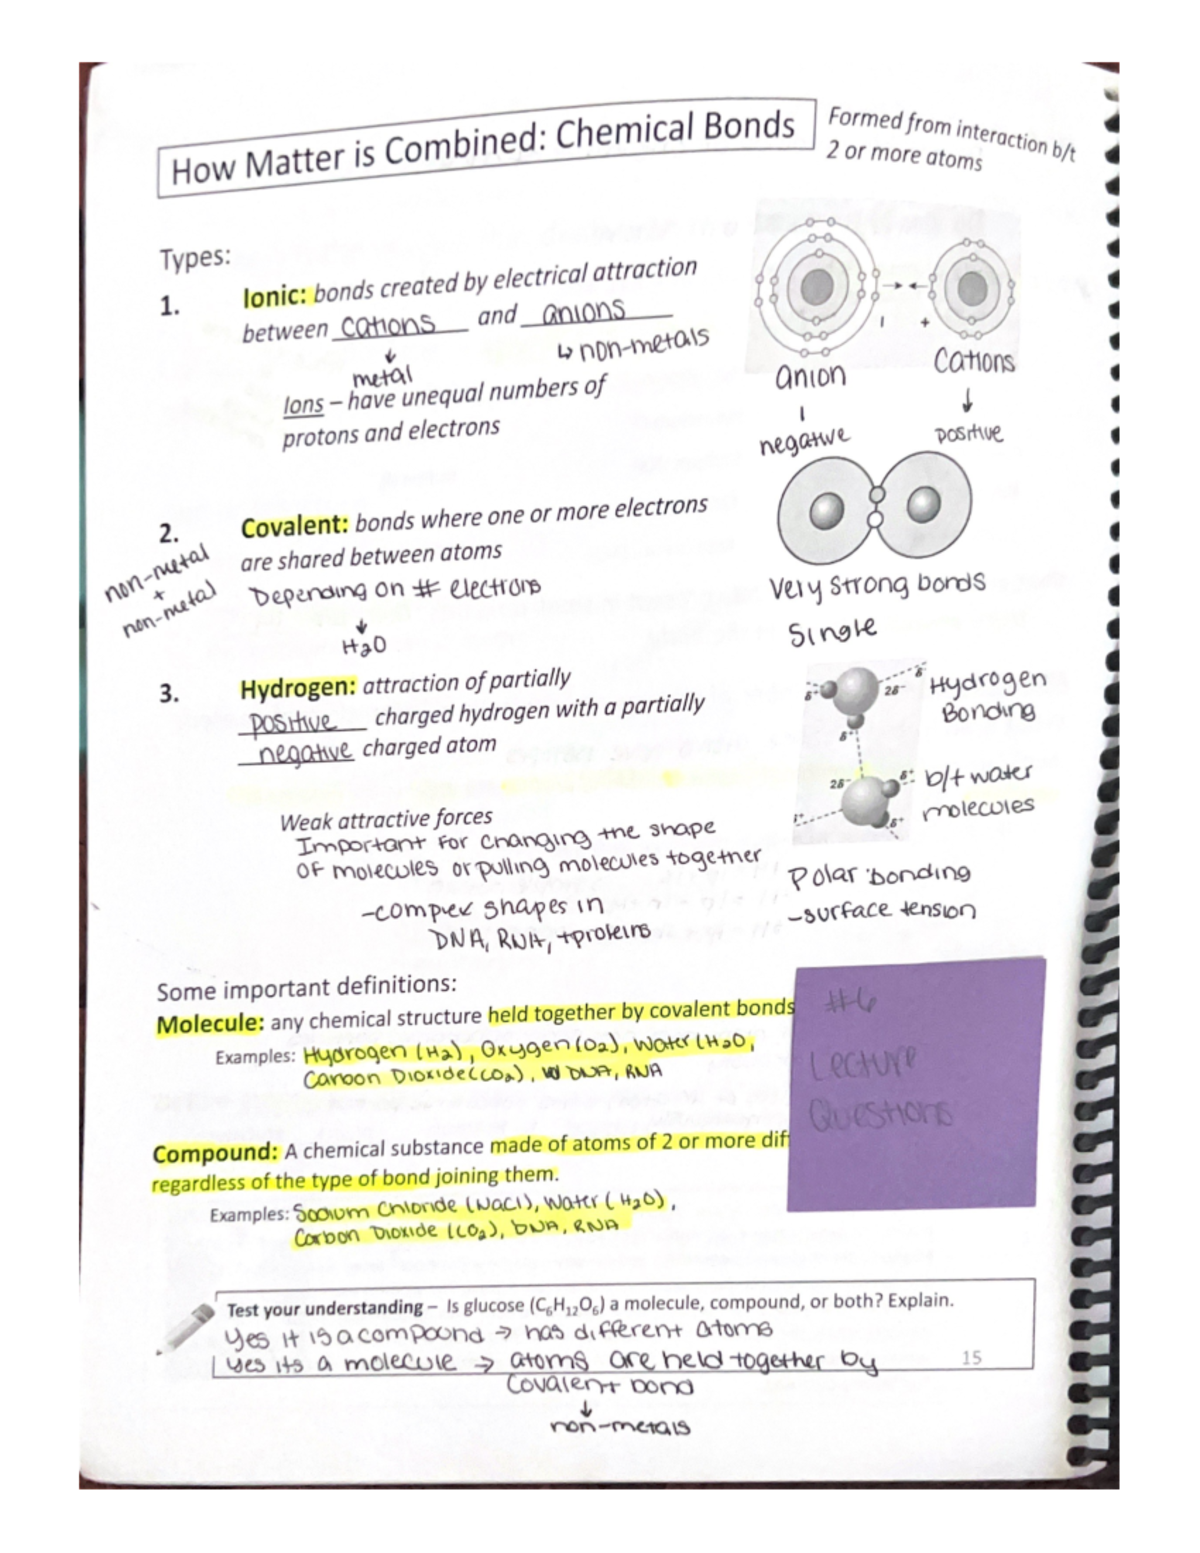 How Matter is Combined: Chemical Bonds
Formed from interaction b/t
2 or more atoms
Types:
1. Ionic: bonds created by electrical attraction
between cations and anions
↓ ↳ non-metals
metal
Ions – have unequal numbers of
protons and electrons
- +
anion Cations
| ↓
negative positive
2. Covalent: bonds where one or more electrons
are shared between atoms
non-metal
+
non-metal
Depending on # electrons
↓
H2O
Very strong bonds
Single
3. Hydrogen: attraction of partially
positive charged hydrogen with a partially
negative charged atom
δ+ 2δ- δ+
2δ- δ+ δ+
Hydrogen
Bonding
b/t water
molecules
Weak attractive forces
Important for changing the shape
of molecules or pulling molecules together
-complex shapes in
DNA, RNA, + proteins
Polar bonding
-surface tension
Some important definitions:
Molecule: any chemical structure held together by covalent bonds
Examples: Hydrogen (H2), Oxygen (O2), Water (H2O,
Carbon Dioxide (CO2), DNA, RNA
#6
Lecture
Questions
Compound: A chemical substance made of atoms of 2 or more diff
regardless of the type of bond joining them.
Examples: Sodium Chloride (NaCl), Water (H2O),
Carbon Dioxide (CO2), DNA, RNA
Test your understanding – Is glucose (C6H12O6) a molecule, compound, or both? Explain.
Yes it is a compound → has different atoms
Yes its a molecule → atoms are held together by
Covalent bond
↓
non-metals
15